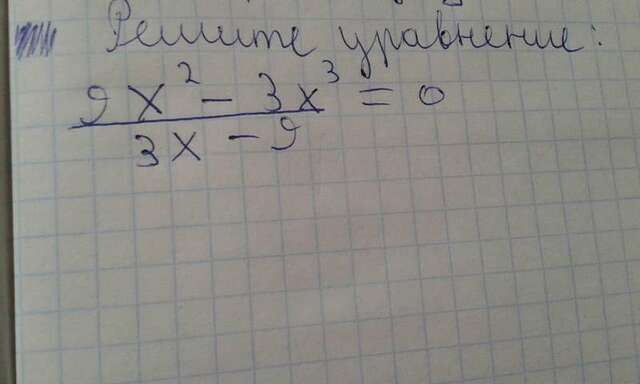 Решите уравнение:
9x² - 3x³ = 0
3x - 9